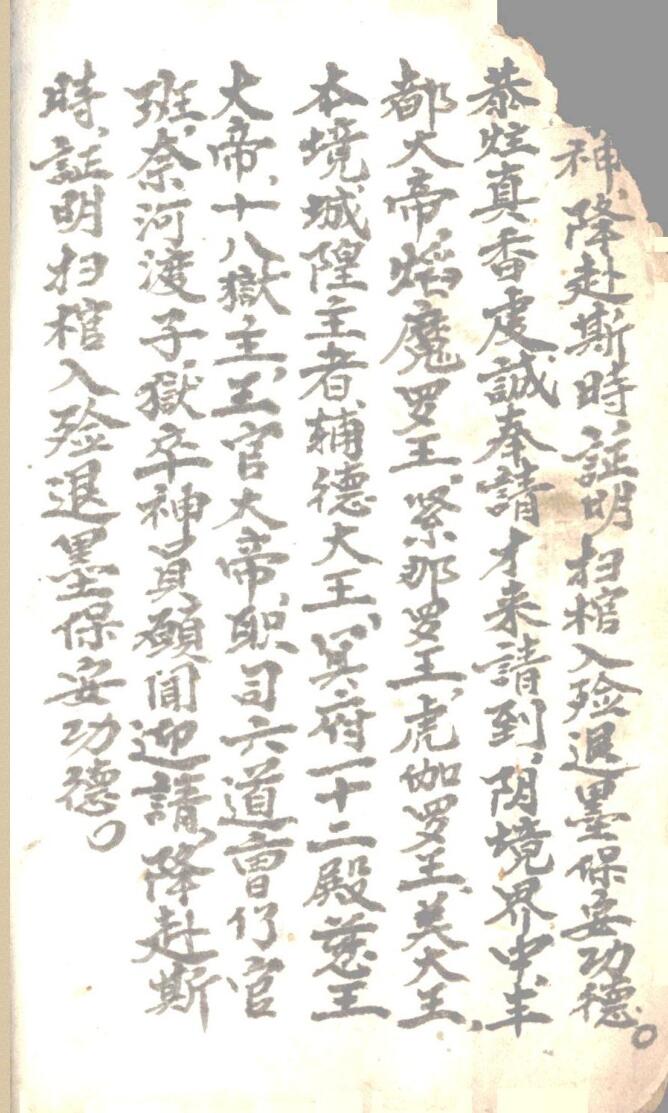 神、降赴斯時、証明扫棺入殓退墨保安功德。
恭炷真香虔誠奉請才来請到、阴境界中、丰
都大帝、焰魔罗王、紧那罗王、虎伽罗王、美大王、
本境城隍主者、輔德大王、冥府一十二殿慈王
大帝、十八獄主、王官大帝、职司六道曹仃官
班、奈河渡子、獄卒神員、願闻迎請、降赴斯
時、証明扫棺入殓退墨保安功德。